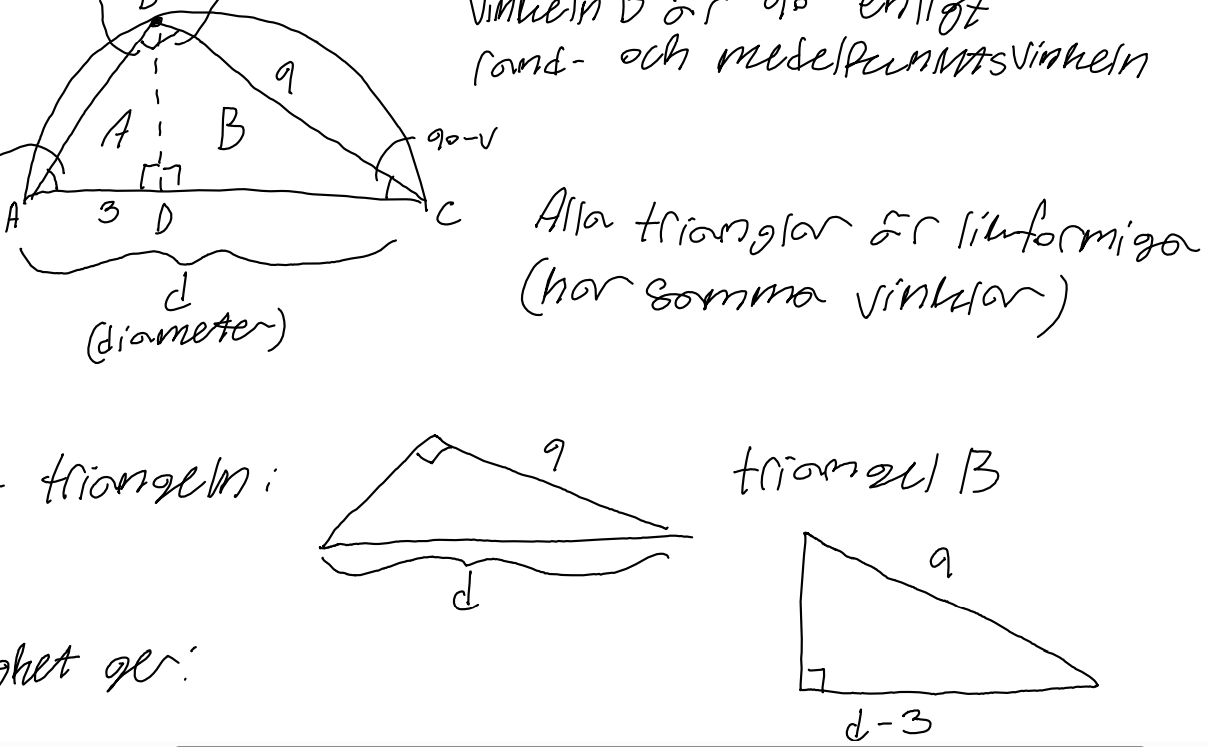 Vinkeln B är 90° enligt
rand- och medelpunktsvinkeln
9
A B
90-v
A 3 D C
Alla trianglar är likformiga
(har samma vinklar)
d
(diameter)
triangeln:
9
d
triangel B
9
d-3
ghet ger: